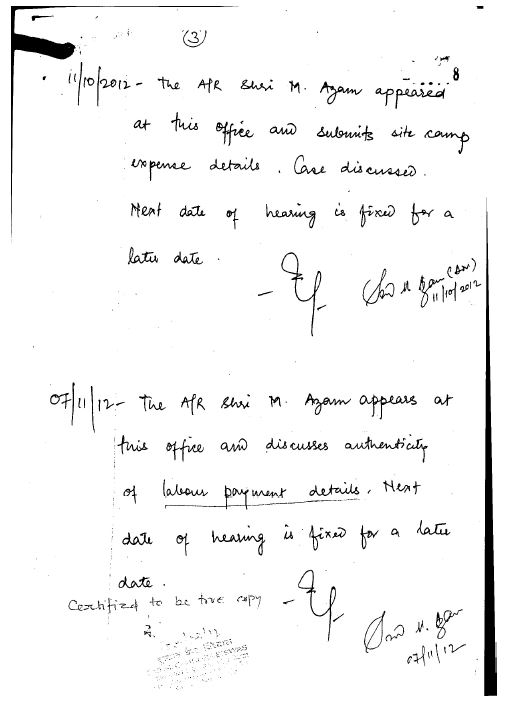 (3)
8
11/10/2012 - The A/R Shri M. Azam appeared
at this office and submits site camp
expense details. Case discussed.
Next date of hearing is fixed for a
later date.
11/10/2012
07/11/12 - The A/R Shri M. Azam appears at
this office and discusses authenticity
of labour payment details. Next
date of hearing is fixed for a later
date.
Certified to be true copy
07/11/12